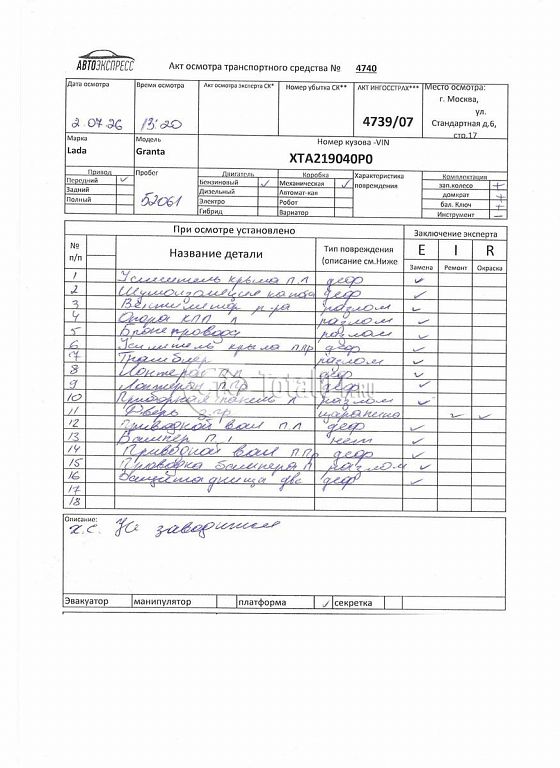 АВТОЭКСПРЕСС
Акт осмотра транспортного средства № 4740
Дата осмотра Время осмотра Акт осмотра эксперта СК* Номер убытка СК** АКТ ИНГОССТРАХ*** Место осмотра:
2.07.26 13:20 4739/07 г. Москва,
ул.
Стандартная д.6,
стр.17
Марка Модель Номер кузова -VIN
Lada Granta XTA219040P0
Привод Пробег Двигатель Коробка -передач Характеристика повреждения Комплектация
Передний ✓ Бензиновый ✓ Механическая ✓ зап.колесо +
Задний Дизельный Автомат-кая домкрат +
Полный 52061 Электро Робот бал. Ключ +
Гибрид Вариатор Инструмент –
При осмотре установлено Заключение эксперта
№ п/п Название детали Тип повреждения (описание см.Ниже E I R
Замена Ремонт Окраска
1 Усилитель крыла П Л деф ✓
2 Шумоизоляция капота деф ✓
3 Вентилятор р-ра разлом ✓
4 Опора КПП Л разлом ✓
5 разлом ✓
6 Усилитель крыла ППр деф ✓
7 Трамблер разлом ✓
8 Лонжерон П Л деф ✓
9 Лонжерон ППр деф ✓
10 Приборная панель разлом ✓
11 Дверь царапина ✓ ✓
12 Приводной вал П Л деф ✓
13 Бампер П нет ✓
14 Приводной вал ППр деф ✓
15 Проводка бампера П разлом ✓
16 Защита днища две деф ✓
17
18
Total01.ru
Описание:
х.с. Не заводится
Эвакуатор манипулятор платформа ✓ секретка